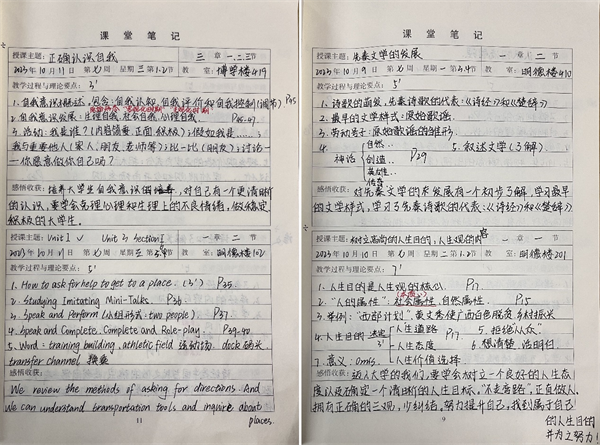 课堂笔记
授课主题：正确认识自我 三 章 一.二.三 节
2023年10月11日 第七周 星期三 1.2节 教室：博学楼419
教学过程与理论要点： 3'
1. 自我意识概述，包含：自我认知，自我评价和自我控制（调节） P45
2. 自我意识发展：生理自我，社会自我，心理自我. P45-49.
3. 活动：我是谁？（内容简要，正面积极）；假如我是……；
我与重要他人（家人，朋友，老师等）；比一比（朋友）；讨论一
一你愿意做你自己吗？
感悟收获： 培养大学生自我意识，对自己有个更清晰
的认识，要学会处理心理和生理上的不良情绪，做稳定
积极的大学生。
授课主题：Unit 1 Unit 3 Section I 一 章 二 节
2023年10月11日 第七周 星期三 节 教室：明德楼102
教学过程与理论要点： 5'
1. How to ask for help to get to a place. (3') P35.
2. Studying Imitating Mini-Talks. P36
3. Speak and Perform (小组形式: two people) P37.
4. Speak and Complete. Complete and Role-play. P39-40.
5. Word: training building, athletic field 运动场 dock 码头
transfer channel 换乘
感悟收获：
We review the methods of asking for directions. And
we can understand transportation tools and inquire about
places.
11
课堂笔记
授课主题：先秦文学的发展 一 章 二 节
2023年10月9日 第七周 星期一 3.4节 教室：明德楼410
教学过程与理论要点： 3'
1. 诗歌的萌发，先秦诗歌的代表：《诗经》和《楚辞》
2. 最早的文学样式：原始歌谣.
3. 劳动号子：原始歌谣的雏形.
4. 神话 自然.. 创造.. 英雄.. 传奇 P29 5. 叙述文学（了解）.
感悟收获： 对先秦文学的发展有个初步了解，学习最早
的文学样式，学习了先秦诗歌的代表：《诗经》和《楚辞》
授课主题：树立高尚的人生目的，人生观的内容 一 章 二 节
2023年10月10日 第七周 星期二 1.2节 教室：明德楼201
教学过程与理论要点： 7'
1. 人生目的是人生观的核心. P17
2. “人的属性”：社会属性，自然属性. P15
3. 举例：“西部计划” 黄文秀 使广西百色脱贫，乡村振兴
4. 人生目的 决定 人生道路 人生态度 人生价值选择 P17 5. 拒绝从众”
6. 想清楚，活明白
7. 意义：
感悟收获：迈入大学的我们，要学会树立一个良好的人生态
度以及确定一个清晰的人生目标，“不走弯路”，正直做人.
拥有正确的三观，少纠结，努力提升自己，找到属于自己
的人生目的
并为之努力！
9